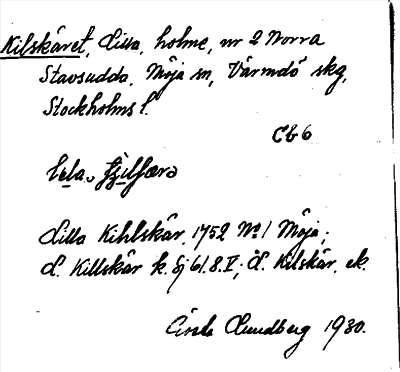 Kilskäret, Lilla, holme, nr 2 Norra
Stavsudda, Möja sn, Värmdö skg,
Stockholms l.
C&6
Lilla Kihlskär, 1752 No 1 Möja;
L. Killskär k. Sj 61.8.V; L. Kilskär, ek.
Lundberg 1930.